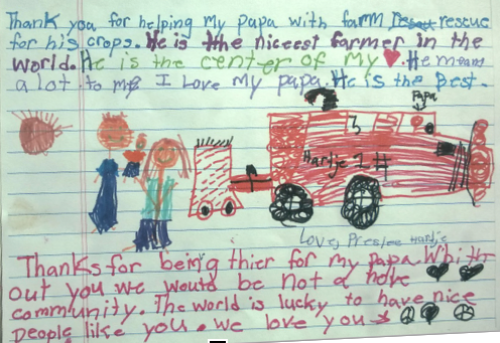 Thank you for helping my papa with farm rescue
for his crops. He is the niceest farmer in the
world. He is the center of my ♥. He means
a lot to me I Love my papa. He is the Best.
Papa
Hartje 1#
Love, Preslee Hartje
Thanks for being thier for my papa. Whith
out you we would be not a hole
community. The world is lucky to have nice
people like you. we love you